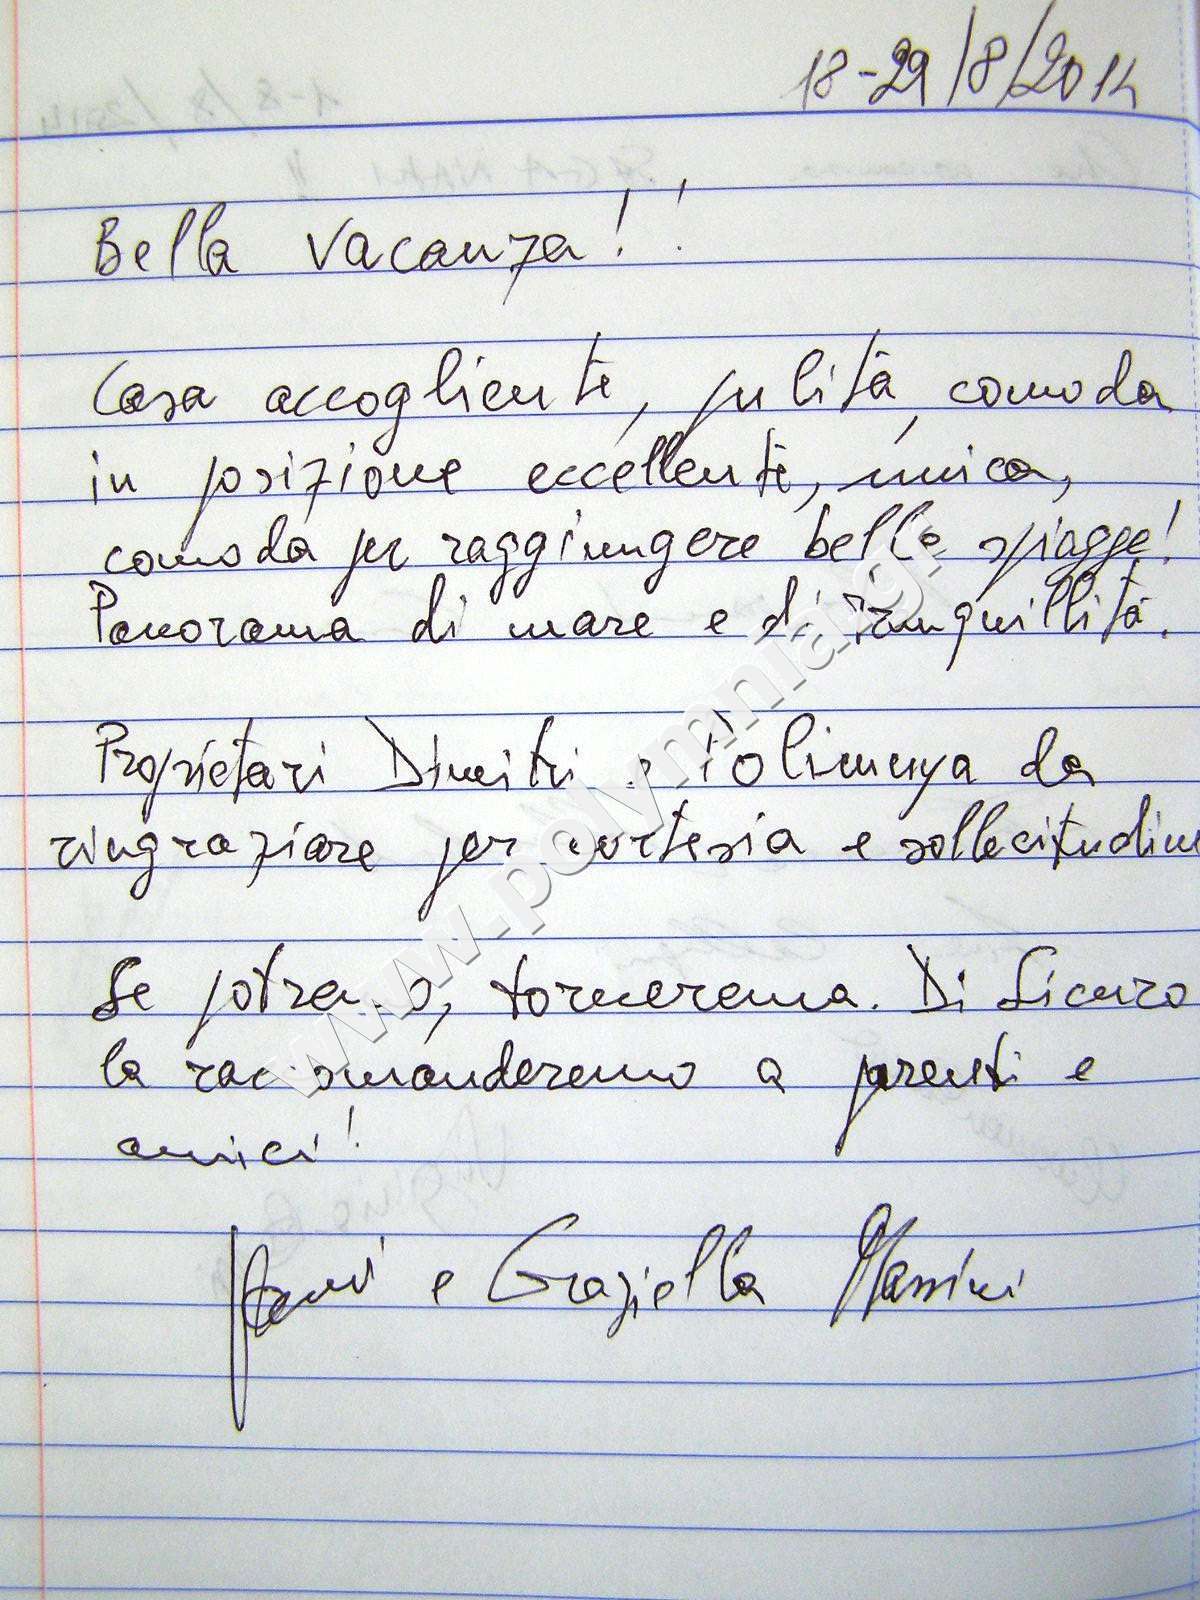 18-29/8/2014
Bella vacanza!!
Casa accogliente, pulita, comoda
in posizione eccellente, unica,
comoda per raggiungere belle spiagge!
Panorama di mare e di tranquillità.
Proprietari Dimitri e Polimnya da
ringraziare per cortesia e sollecitudine
Se potremo, torneremo. Di sicuro
la raccomanderemo a parenti e
amici!
e Graziella Massini
www.polymnia.gr